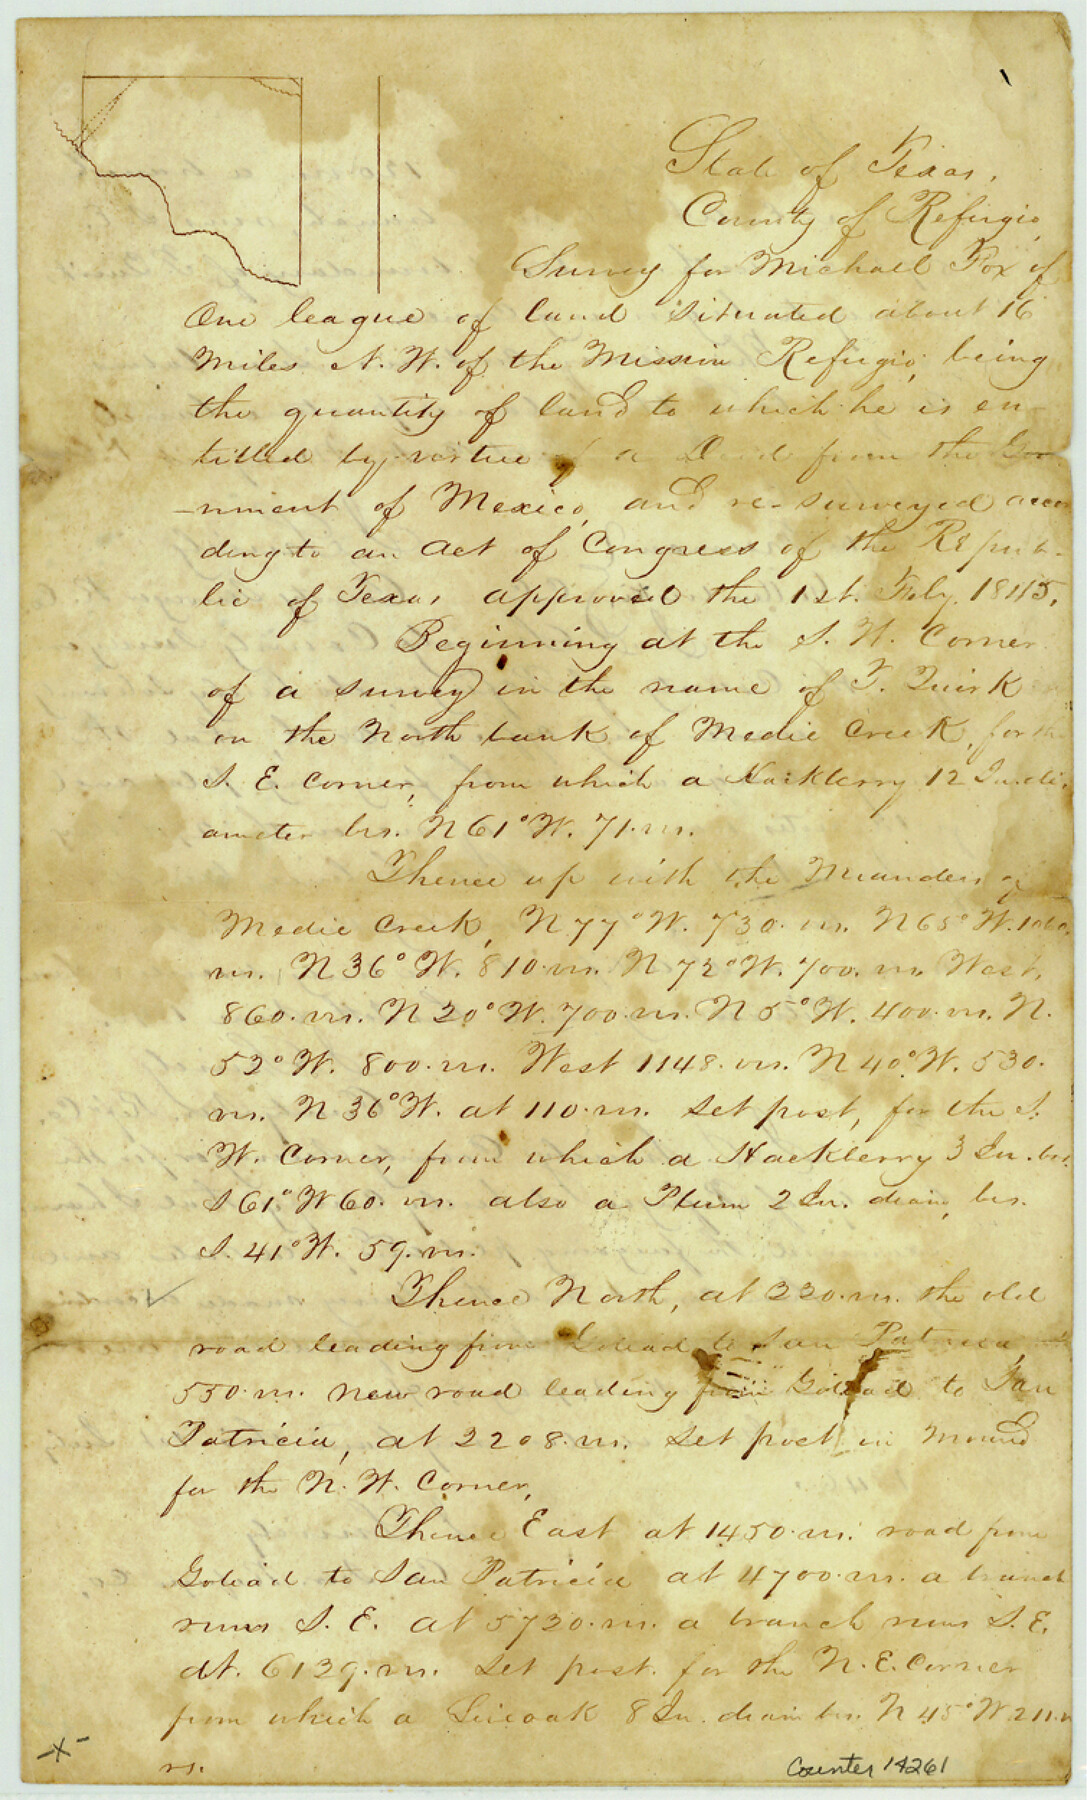 State of Texas,
County of Refugio,
Survey for Michael Fox of
One league of land situated about 16
Miles N. W. of the Mission Refugio, being
the quantity of land to which he is en-
titled by virtue of a Deed from the Gov-
-nment of Mexico, and re-surveyed accor
ding to an Act of Congress of the Repub-
lic of Texas approved the 1st. Feby. 1845,
Beginning at the S. W. Corner
of a survey in the name of T. Quirk
on the North bank of Medio Creek, for the
S. E. Corner, from which a Hackberry 12 In. di-
ameter brs. N 61° W. 71. vrs.
Thence up with the Meanders of
Medio Creek, N 77° W. 730. vrs. N 65° W. 1060.
vrs. N 36° W. 810. vrs. N 72° W. 700. vrs. West,
860. vrs. N 20° W. 700. vrs. N 5° W. 400. vrs. N.
52° W. 800. vrs. West 1148. vrs. N 40° W. 530.
vrs. N 36° W. at 110. vrs. set post, for the S.
W. Corner, from which a Hackberry 3 In. brs.
S 61° W 60. vrs. also a Plum 2 In. diam, brs.
S. 41° W. 59. vrs.
Thence North, at 220. vrs. the old
road leading from Goliad to San Patricia,
550. vrs. new road leading from Goliad to San
Patricia, at 2208. vrs. set post in Mound
for the N. W. Corner,
Thence East at 1450. vrs. road from
Goliad to San Patricia at 4700. vrs. a branch
runs S. E. at 5720. vrs. a branch runs S. E.
At. 6129. vrs. set post. for the N. E. Corner
from which a Liveoak 8 In. diam brs. N 45° W. 211. v
rs.
-x-
Counter 14261